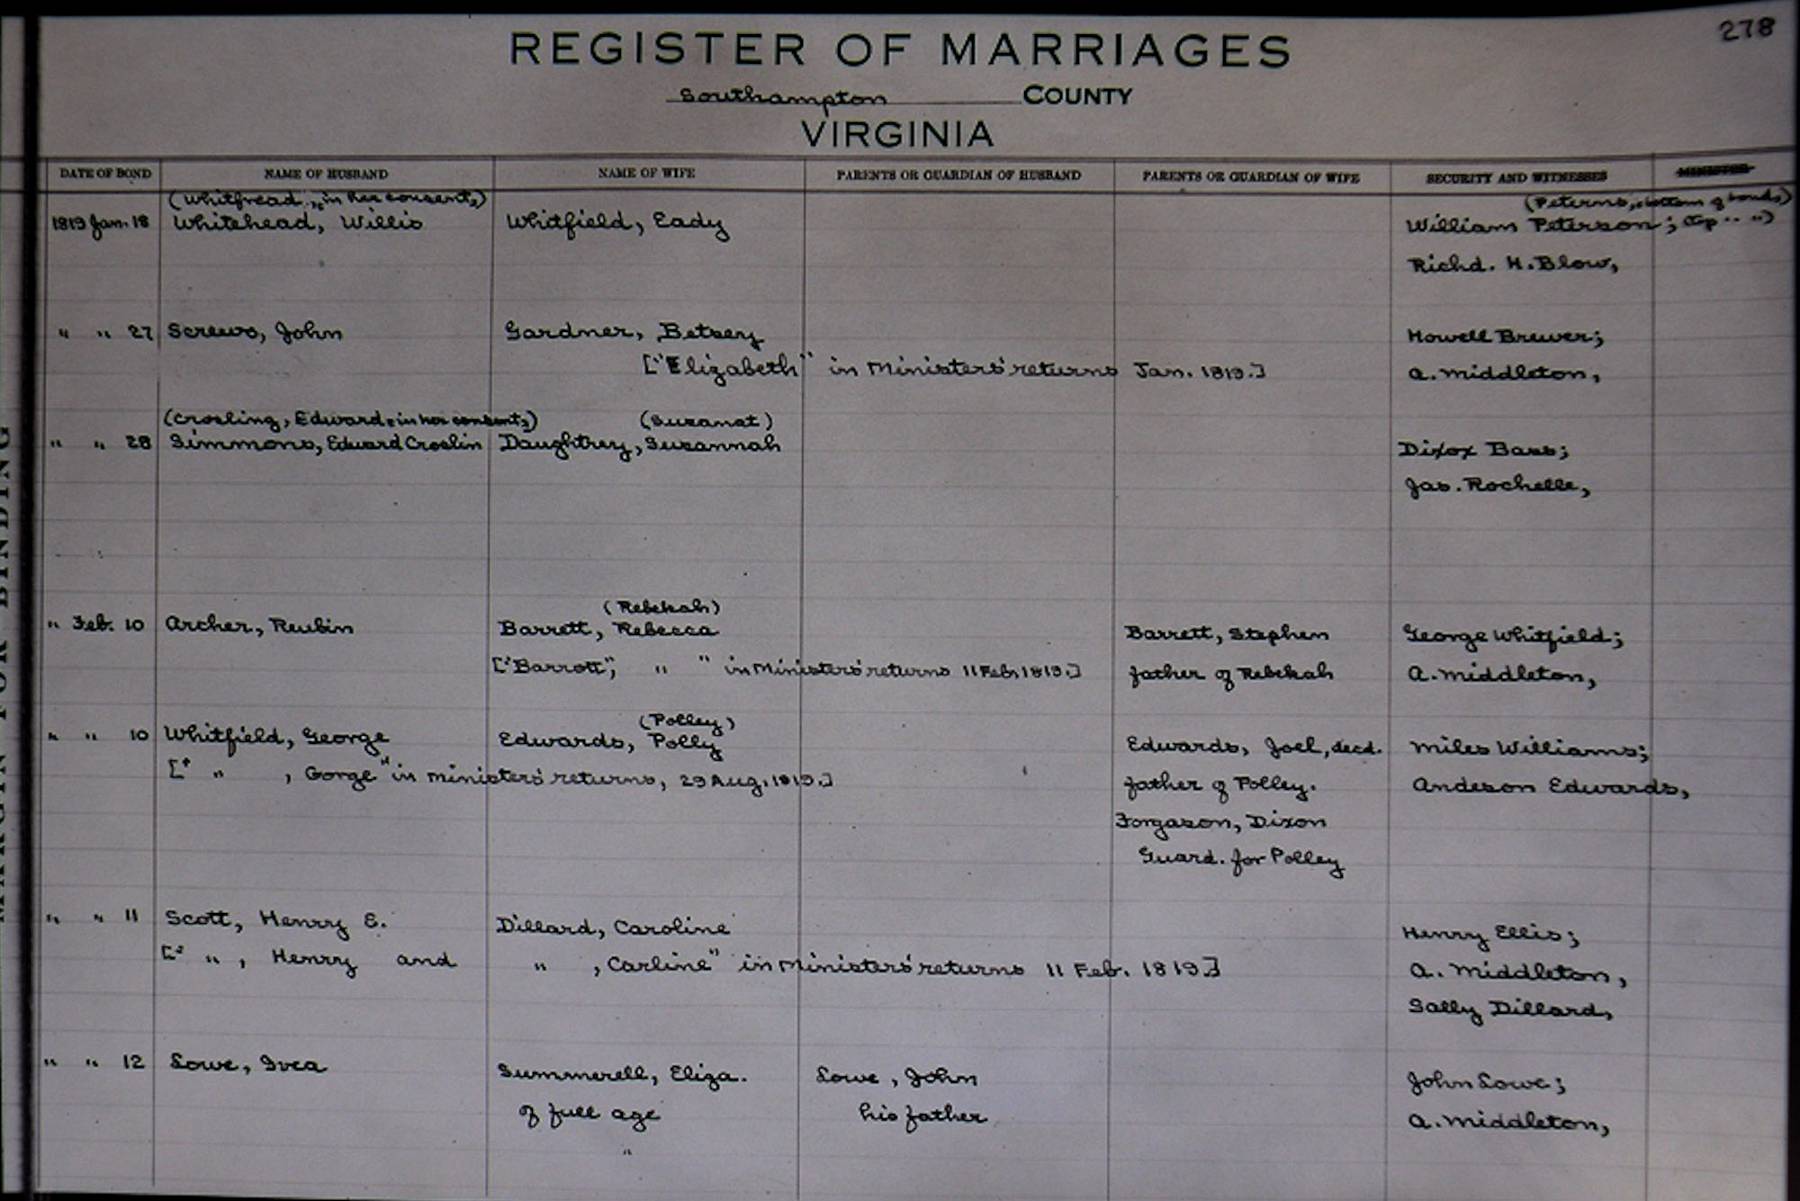 278
REGISTER OF MARRIAGES
Southampton COUNTY
VIRGINIA
DATE OF BOND NAME OF HUSBAND NAME OF WIFE PARENTS OR GUARDIAN OF HUSBAND PARENTS OR GUARDIAN OF WIFE SECURITY AND WITNESSES MINISTER
(Whitfread, "in her consent,) (Peterns, bottom of bonds)
1819 Jan. 18 Whitehead, Willis Whitfield, Eady William Peterson; (Top " ")
Richd. H. Blow,
" " 27 Screws, John Gardner, Betsey Howell Brewer;
["Elizabeth" in Ministers' returns Jan. 1819.] A. Middleton,
(Crosling, Edward, in her consent,) (Suzanat)
" " 28 Simmons, Edward Croslin Daughtrey, Susannah Dixox Bass;
Jas. Rochelle,
(Rebekah)
" Feb. 10 Archer, Reubin Barrett, Rebecca Barrett, Stephen George Whitfield;
["Barrott", " " in Ministers' returns 11 Feb. 1819.] father of Rebekah A. Middleton,
(Polley)
" " 10 Whitfield, George Edwards, Polly Edwards, Joel, decd. Miles Williams;
[" " , Gorge" in ministers' returns, 29 Aug. 1819.] father of Polley. Andeson Edwards,
Forgason, Dixon
Guard. for Polley
" " 11 Scott, Henry E. Dillard, Caroline Henry Ellis;
[" " , Henry and " , Carline" in Ministers' returns 11 Feb. 1819] A. Middleton,
Sally Dillard,
" " 12 Lowe, Ivea Summerell, Eliza. Lowe, John John Lowe;
of full age his father A. Middleton,
"
MARGIN FOR BINDING